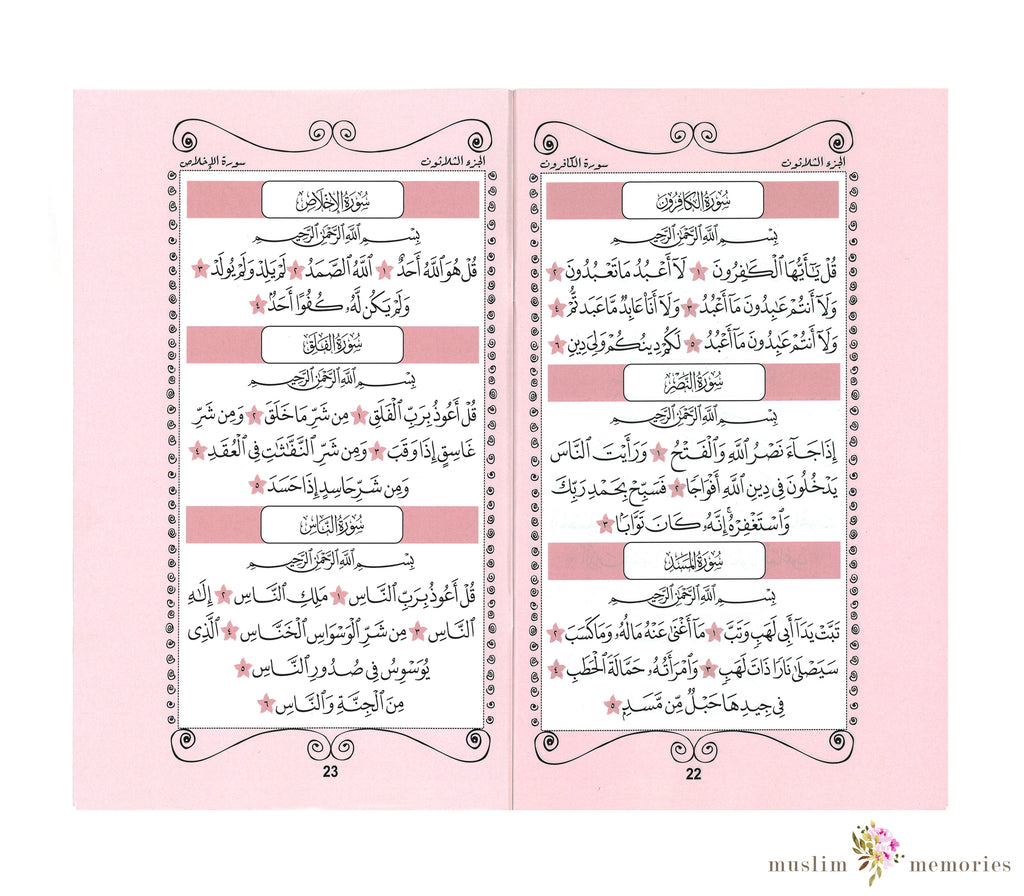 الجزء الثلاثون
سورة الكافرون
سُورَةُ الكَافِرُون
بِسْمِ ٱللَّهِ ٱلرَّحْمَٰنِ ٱلرَّحِيمِ
قُلْ يَٰٓأَيُّهَا ٱلْكَٰفِرُونَ ١ لَآ أَعْبُدُ مَا تَعْبُدُونَ ٢
وَلَآ أَنتُمْ عَٰبِدُونَ مَآ أَعْبُدُ ٣ وَلَآ أَنَا۠ عَابِدٌ مَّا عَبَدتُّمْ ٤
وَلَآ أَنتُمْ عَٰبِدُونَ مَآ أَعْبُدُ ٥ لَكُمْ دِينُكُمْ وَلِىَ دِينِ ٦
سُورَةُ النَّصْر
بِسْمِ ٱللَّهِ ٱلرَّحْمَٰنِ ٱلرَّحِيمِ
إِذَا جَآءَ نَصْرُ ٱللَّهِ وَٱلْفَتْحُ ١ وَرَأَيْتَ ٱلنَّاسَ
يَدْخُلُونَ فِى دِينِ ٱللَّهِ أَفْوَاجًا ٢ فَسَبِّحْ بِحَمْدِ رَبِّكَ
وَٱسْتَغْفِرْهُ ۚ إِنَّهُۥ كَانَ تَوَّابًۢا ٣
سُورَةُ المَسَد
بِسْمِ ٱللَّهِ ٱلرَّحْمَٰنِ ٱلرَّحِيمِ
تَبَّتْ يَدَآ أَبِى لَهَبٍ وَتَبَّ ١ مَآ أَغْنَىٰ عَنْهُ مَالُهُۥ وَمَا كَسَبَ ٢
سَيَصْلَىٰ نَارًا ذَاتَ لَهَبٍ ٣ وَٱمْرَأَتُهُۥ حَمَّالَةَ ٱلْحَطَبِ ٤
فِى جِيدِهَا حَبْلٌ مِّن مَّسَدٍۭ ٥
22
الجزء الثلاثون
سورة الإخلاص
سُورَةُ الإِخْلَاص
بِسْمِ ٱللَّهِ ٱلرَّحْمَٰنِ ٱلرَّحِيمِ
قُلْ هُوَ ٱللَّهُ أَحَدٌ ١ ٱللَّهُ ٱلصَّمَدُ ٢ لَمْ يَلِدْ وَلَمْ يُولَدْ ٣
وَلَمْ يَكُن لَّهُۥ كُفُوًا أَحَدٌۢ ٤
سُورَةُ الفَلَق
بِسْمِ ٱللَّهِ ٱلرَّحْمَٰنِ ٱلرَّحِيمِ
قُلْ أَعُوذُ بِرَبِّ ٱلْفَلَقِ ١ مِن شَرِّ مَا خَلَقَ ٢ وَمِن شَرِّ
غَاسِقٍ إِذَا وَقَبَ ٣ وَمِن شَرِّ ٱلنَّفَّٰثَٰتِ فِى ٱلْعُقَدِ ٤
وَمِن شَرِّ حَاسِدٍ إِذَا حَسَدَ ٥
سُورَةُ النَّاس
بِسْمِ ٱللَّهِ ٱلرَّحْمَٰنِ ٱلرَّحِيمِ
قُلْ أَعُوذُ بِرَبِّ ٱلنَّاسِ ١ مَلِكِ ٱلنَّاسِ ٢ إِلَٰهِ
ٱلنَّاسِ ٣ مِن شَرِّ ٱلْوَسْوَاسِ ٱلْخَنَّاسِ ٤ ٱلَّذِى
يُوَسْوِسُ فِى صُدُورِ ٱلنَّاسِ ٥
مِنَ ٱلْجِنَّةِ وَٱلنَّاسِ ٦
23
muslim memories